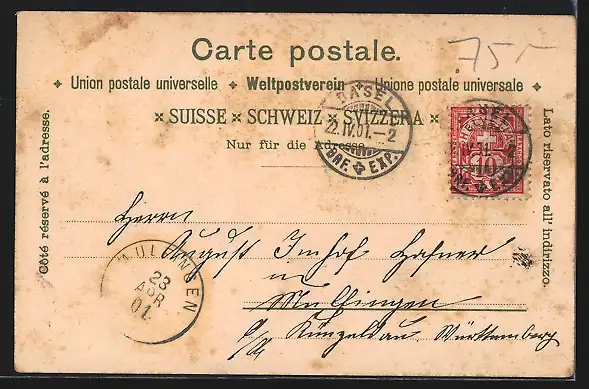 Carte postale.
75.-
Union postale universelle + Weltpostverein + Unione postale universale
× SUISSE × SCHWEIZ × SVIZZERA ×
Nur für die Adresse.
Côté réservé à l'adresse.
Lato riservato all' indirizzo.
BASEL
22.IV.01.-2
BRF. EXP.
HELVETIA
10
Herrn
August Imhof Hafner
in
Mulfingen
Künzelsau Württemberg
MULFINGEN
23
APR
01